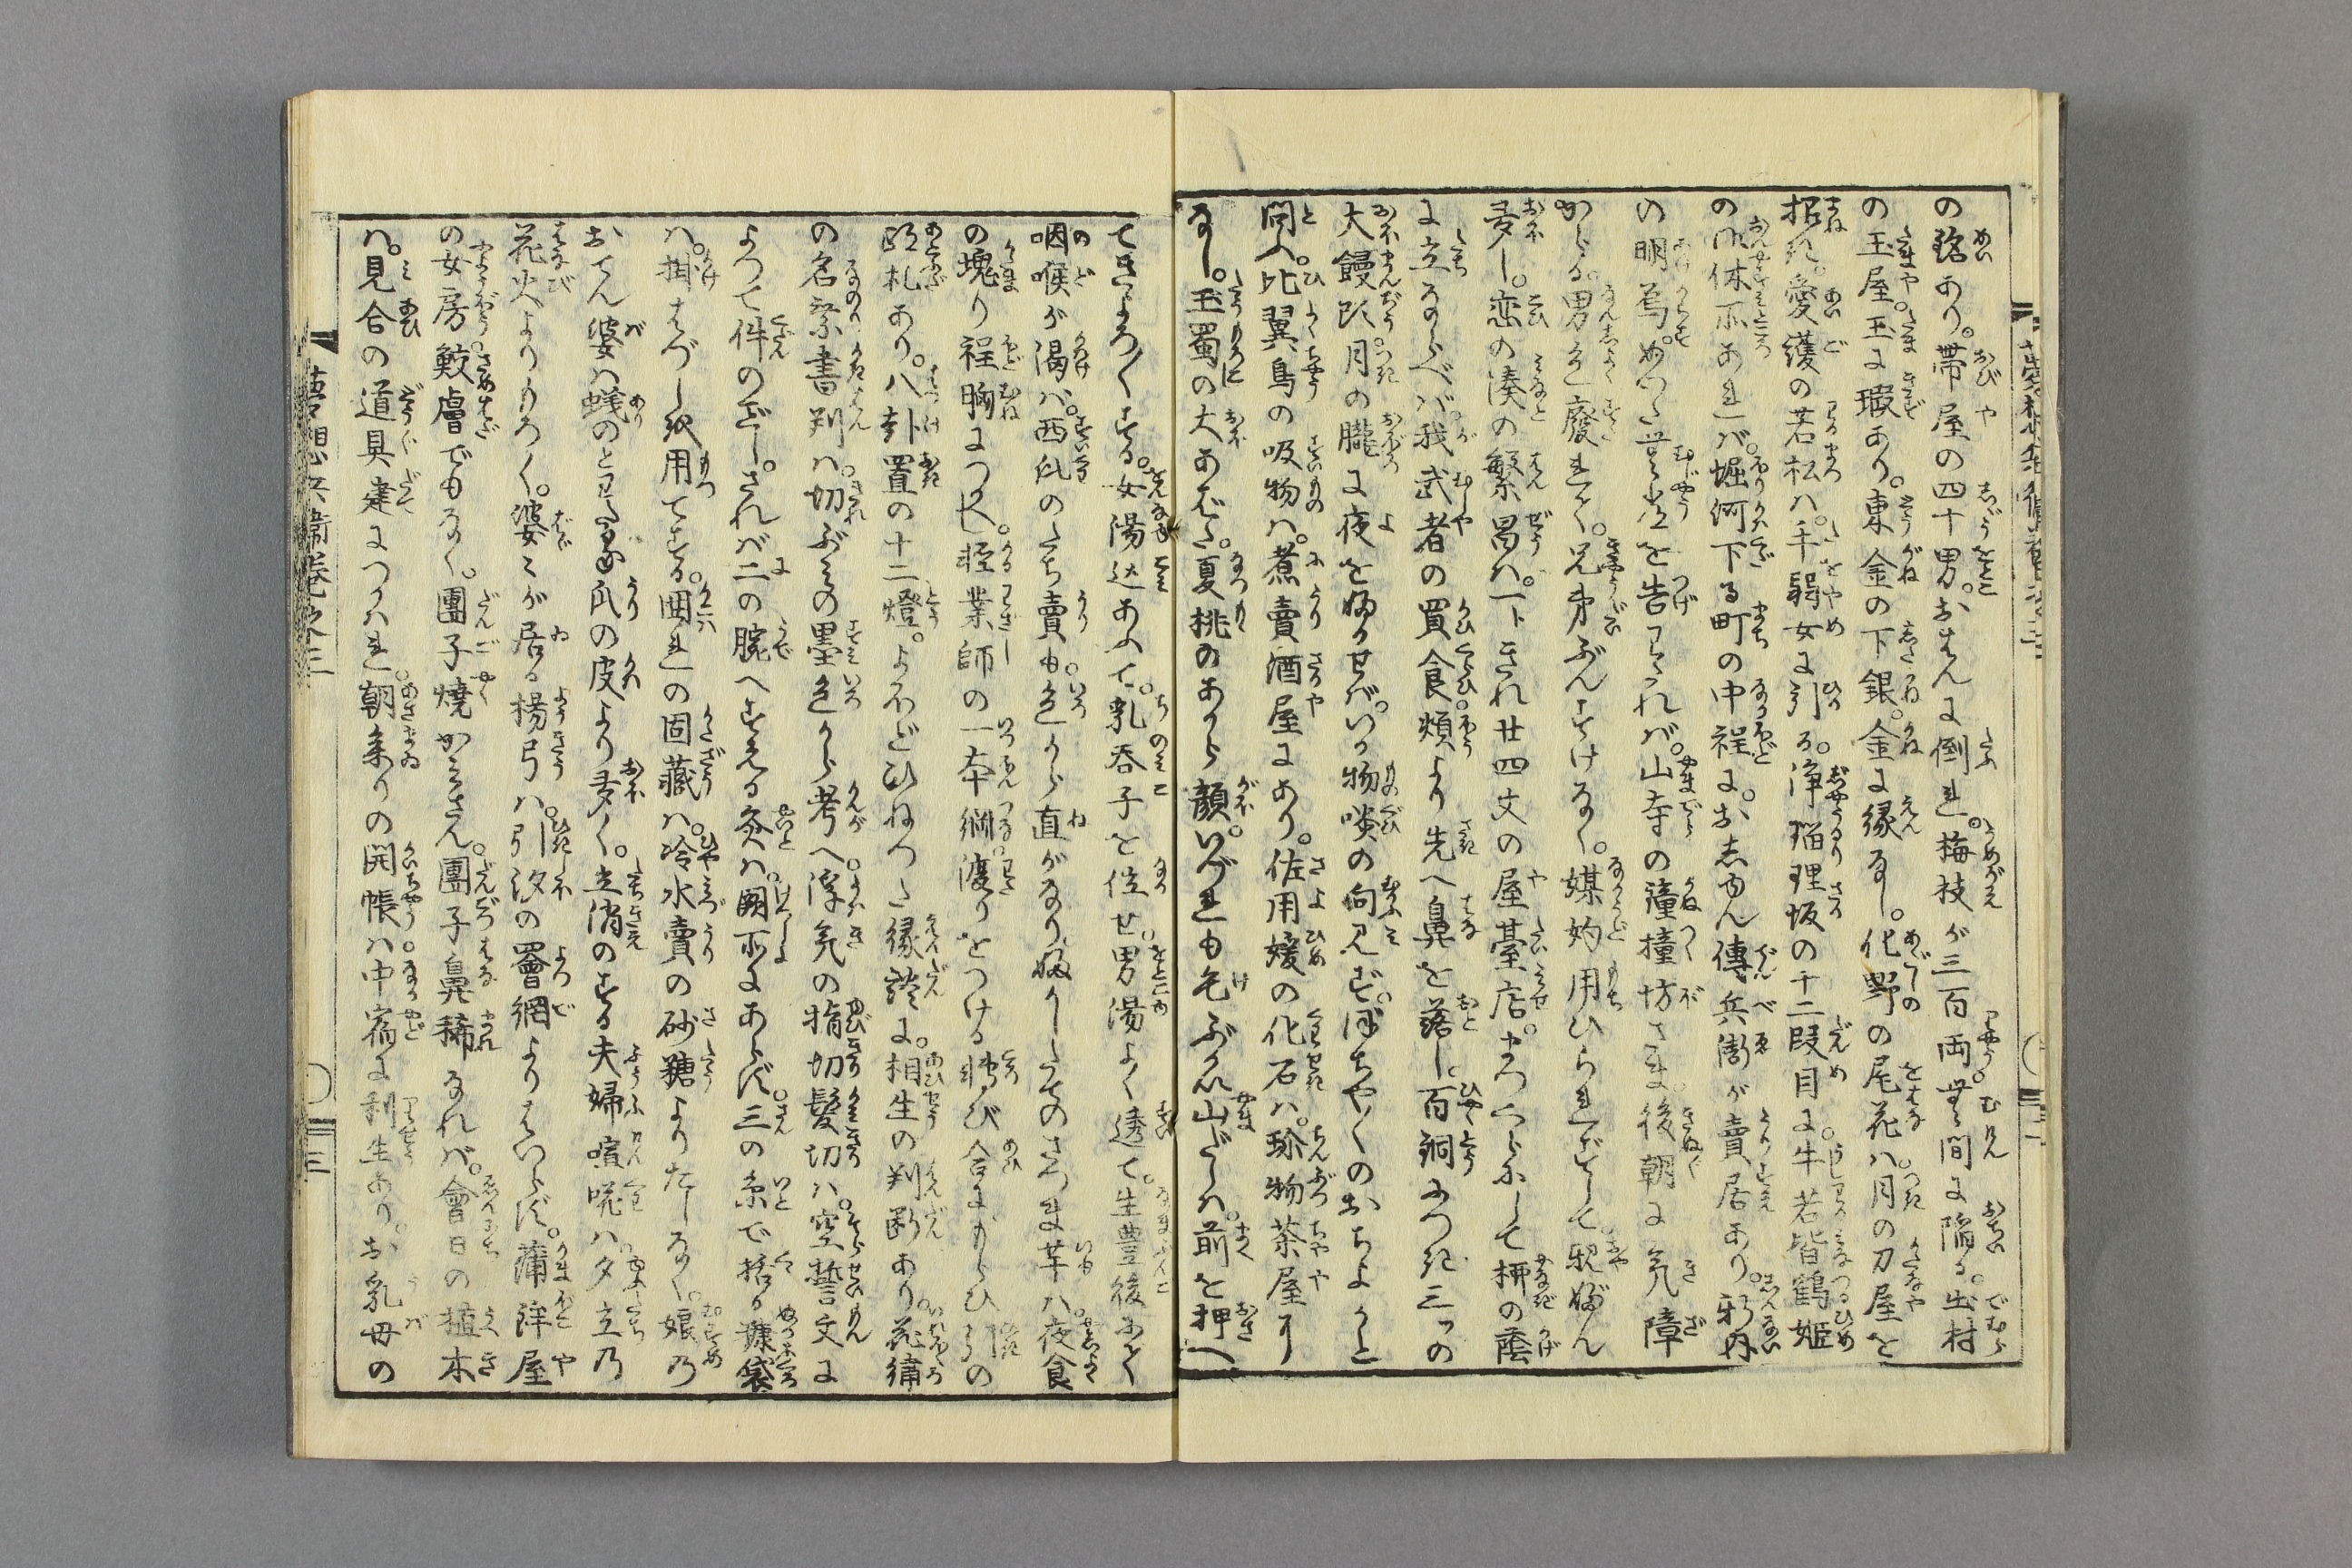 の銘あり。帯屋の四十男。おはんに倒れ。梅枝が三百両無間に陥る。出村
の玉屋玉に瑕あり。東金の下銀。金に縁なし。化野の尾花ハ。月の刀屋を
招ぎ。愛護の若松ハ。手弱女に引る。浄瑠理坂の十二段目に。牛若皆鶴姫
の御休所あれバ。堀河下る町の中程に。おしゆん傳兵衛が賣居あり。新内
の明烏。めつた無常を告わたれバ。山寺の鐘撞坊さま。後朝に気障
がる。男色廃れて。兄弟ぶんすけなく。媒妁用ひられずして。親ぶん
多し。恋の湊の繁昌ハ。一トきれ廿四文の屋薹店。まつくらにして柳の蔭
に立ならべバ。我武者の買食。頬より先へ鼻を落し。百銅ふつて三つの
大饅頭。月の朧に夜を更せバ。いか物喰の向見ず。ぼちや〳〵のおちよかと
問へ。比翼鳥の吸物ハ。煮賣酒屋にあり。佐用媛の化石ハ。珍物茶屋に
なし。玉蜀の大あばた。夏桃のあから顔。いづれも毛ぶかい山だしハ。前を押へ
てきよろ〳〵する。女湯込あふて。乳呑子を泣せ。男湯よく透て。生豊後ふとく
咽喉が渇バ。西瓜のたち賣も。色から直がなり。更しさのさつま芋ハ。夜食
の塊り程胸につかへ。軽業師の一本綱。渡りをつける轉び合にからひ引の
賍札あり。八卦置の十二燈。よほどひねつた縁談に。相生の判断あり。花繍
の名前書判ハ。切ぶみの墨色から考へ。浮気の指切髪切ハ。空誓文に
よつて件のごし。されバ二の腕へすえる灸ハ。関所にあらず。三の糸で括る糠袋
ハ。掛はづし紙用てする。囲れの固藏ハ。冷水賣の砂糖よりたしなく。娘乃
おてん婆ハ蟻のとわたる瓜の皮より多く。立消のする夫婦喧𠵅ハ。夕立乃
花火よりもろく。婆々が居る楊弓ハ。引汐の罾網よりはいらず。蒲鉾屋
の女房。鮫膚でもなく。團子焼かゝさん。團子鼻稀なれバ。會日の植木
ハ。見合の道具建につかはれ。朝参りの開帳ハ。中宿に利生あり。お乳母の
夢想兵衛巻之三
三